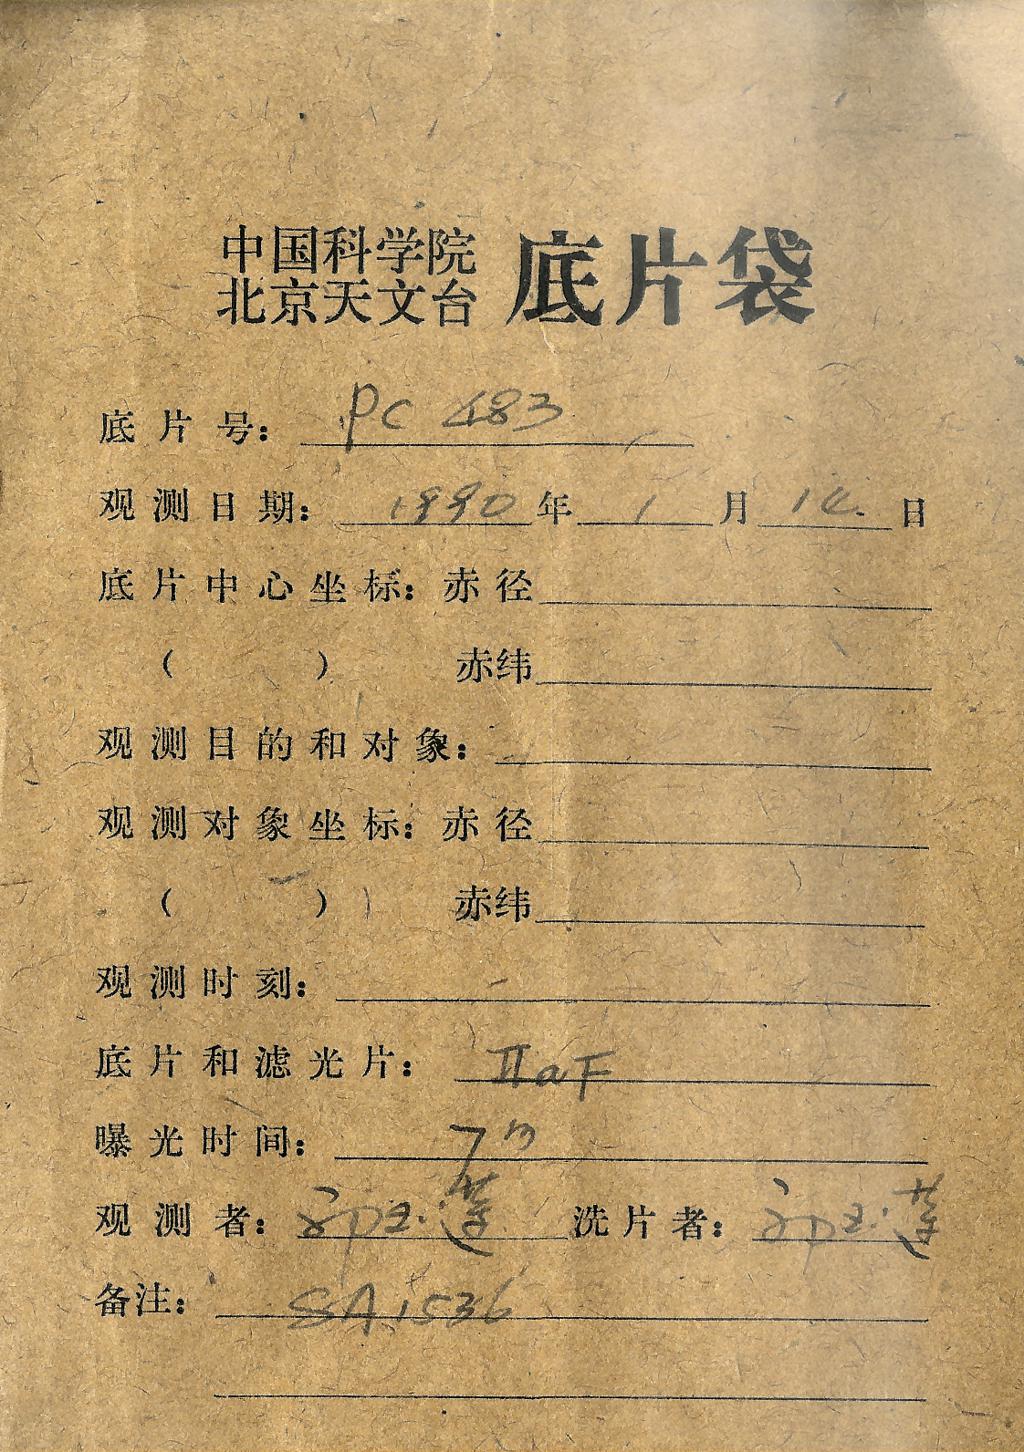 中国科学院
北京天文台 底片袋
底片号: PC 483
观测日期: 1990年1月14日
底片中心坐标: 赤径
( ) 赤纬
观测目的和对象:
观测对象坐标: 赤径
( ) 赤纬
观测时刻:
底片和滤光片: IIaF
曝光时间: 7m
观测者: 玉莲 洗片者: 玉莲
备注: SA1536